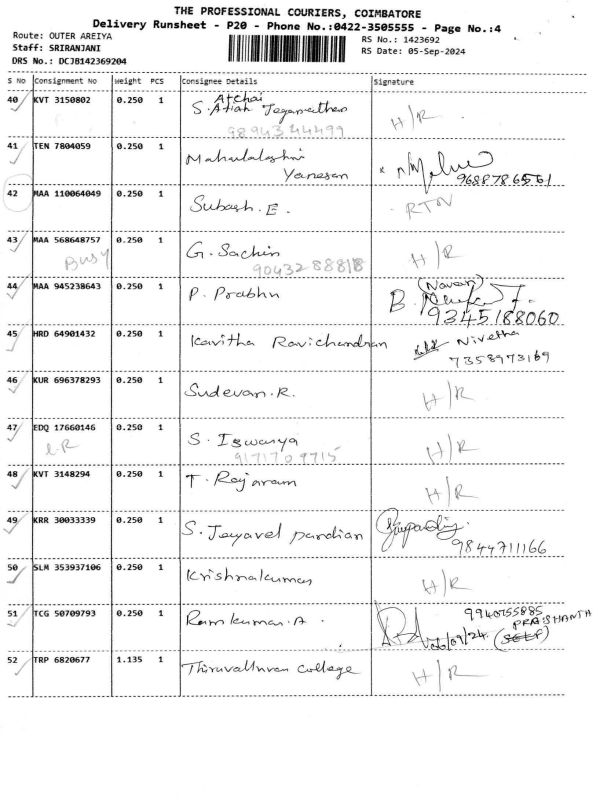 THE PROFESSIONAL COURIERS, COIMBATORE
Delivery Runsheet - P20 - Phone No.:0422-3505555 - Page No.:4
Route: OUTER AREIYA RS No.: 1423692
Staff: SRIRANJANI RS Date: 05-Sep-2024
DRS No.: DCJB142369204
S No Consignment No Weight PCS Consignee Details Signature
40 KVT 3150802 0.250 1 S. Jeganathan H/R
41 TEN 7804059 0.250 1 Mahalakshmi
Yanesan 9688786561
42 MAA 110064049 0.250 1 Subash. E. RTN
43 MAA 568648757 0.250 1 G. Sachin H/R
Busy 90432 88818
44 MAA 945238643 0.250 1 P. Prabhu
9345188060
45 HRD 64901432 0.250 1 Kavitha Ravichandran Nivetha
7358973169
46 KUR 696378293 0.250 1 Sudevan. R. H/R
47 EDQ 17660146 0.250 1 S. Iswarya H/R
91717 09715
48 KVT 3148294 0.250 1 T. Rajaram H/R
49 KRR 30033339 0.250 1 S. Jeyavel pandian
9844711166
50 SLM 353937106 0.250 1 Krishnakumar H/R
51 TCG 50709793 0.250 1 Ramkumar. A. 9940755885
PRASHANTH
06/09/24 (SELF)
52 TRP 6820677 1.135 1 Thiruvalluvar College H/R